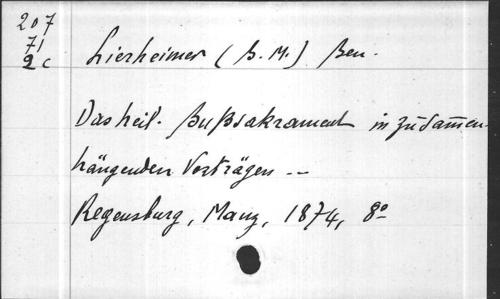 207
71
2c
Lierheimer (B. M.) Ben.
Das heil. Bußsakrament in zusam̄en-
hängenden Vorträgen --
Regensburg, Manz, 1874, 8º